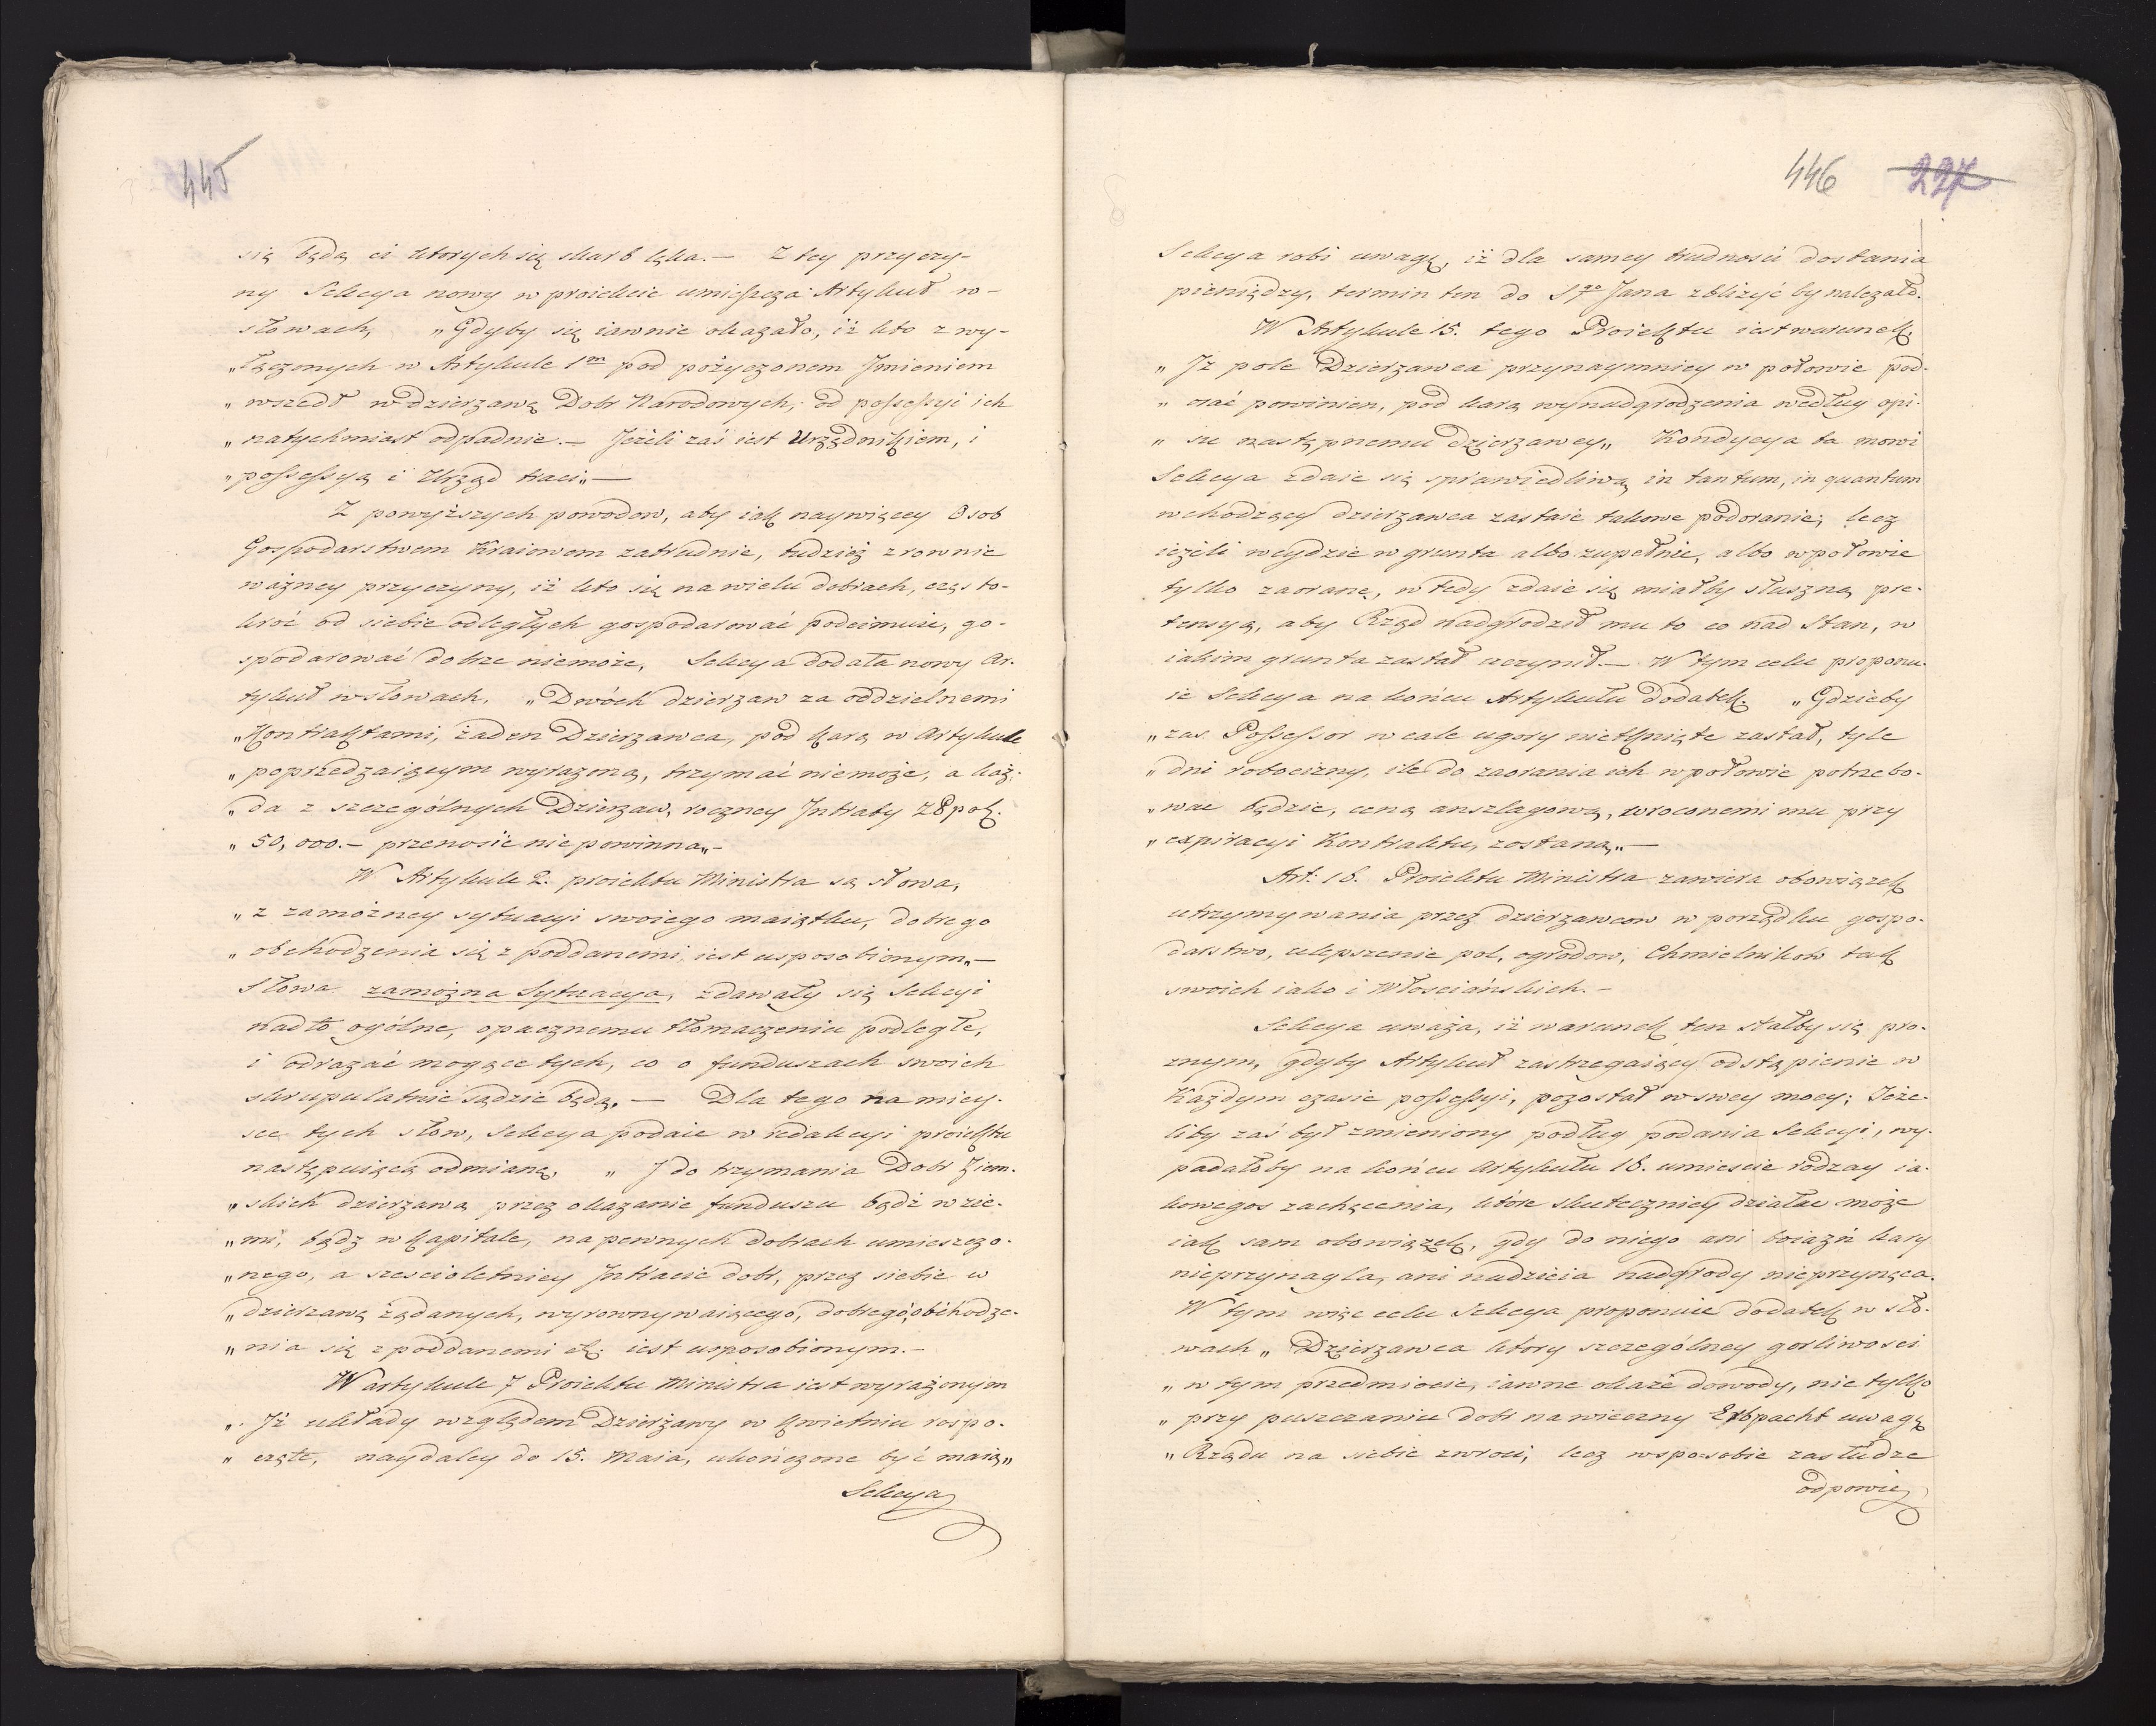 445
się będą ci ktorych się skarb lęka. — Z tey przyczy-
ny Sekcya nowy w proiekcie umieszcza Artykuł w-
słowach, „Gdyby się iawnie okazało, iż kto z wy-
„łączonych w Artykule 1m pod pożyczonem Jmieniem
„wszedł w dzierzawę Dobr Narodowych, od possessyi ich
„natychmiast odpadnie. — Jeżeli zaś iest Urzędnikiem, i
„possessyą i Urząd traci„ —
Z powyższych powodow, aby iak naywięcey Osob
Gospodarstwem Kraiowem zatrudnić, tudzież z rownie
ważney przyczyny, iż kto się na wielu dobrach, często-
kroć od siebie odległych gospodarować podeimuie, go-
spodarować dobrze niemoże, Sekcya dodała nowy Ar-
tykuł w słowach. „Dwóch dzierzaw za oddzielnemi
„Kontraktami, żaden Dzierzawca, pod karą w Artykule
„poprzedzaiącym wyrazoną, trzymać niemoże, a każ-
„da z szczególnych Dzierzaw, roczney Jntraty Zł pol.
„50,000. — przenosić nie powinna„ —
W Artykule 2. proiektu Ministra są słowa,
„z zamożney sytuacyi swoiego maiątku, dobrego
„obchodzenia się z poddanemi iest usposobionym„ —
Słowa zamożna Sytuacya, zdawały się Sekcyi
nadto ogólne, opacznemu tłomaczeniu podległe,
i odrazać mogące tych, co o funduszach swoich
skrupulatnie sądzić będą. — Dla tego na miey-
sce tych słow, Sekcya podaie w redakcyi proiektu
następuiącą odmianę, „J do trzymania Dobr Ziem-
„skich dzierzawą przez okazanie funduszu bądź w zie-
„mi, bądz w kapitale, na pewnych dobrach umieszczo-
„nego, a sześcioletniey Jntracie dobr, przez siebie w
„dzierzawę żądanych, wyrownywaiącego, dobrego obchodze-
„nia się z poddanemi etc. iest usposobionym. —
W artykule 7 Proiektu Ministra iest wyrażonym
„Jż układy względem Dzierżawy w kwietniu rospo-
„częte, naydaley do 15. Maia, ukończone być maią„
Sekcya
446 227
Sekcya robi uwagę, iż dla samey trudności dostania
pieniędzy, termin ten do Sgo Jana zbliżyć by nalezało.
W Artykule 15. tego Proiektu iest warunek,
„Jż pole Dzierzawca przynaymniey w połowie pod-
„orać powinien, pod karą wynadgrodzenia według opi-
„su następnemu Dzierzawcy„ Kondycya ta mowi
Sekcya zdaie się sprawiedliwą in tantum, in quantum
wchodzący dzierzawca zastaie takowe podoranie; lecz
ieżeli weydzie w grunta albo zupełnie, albo w połowie
tylko zaorane, wtedy zdaie się miałby słuszną pre-
tensyą, aby Rząd nadgrodził mu to co nad Stan, w
iakim grunta zastał uczynił. — W tym celu proponu-
ie Sekcya na końcu Artykułu dodatek. „Gdzieby
„zas Possessor wcale ugory nietknięte zastał, tyle
„dni robocizny, ile do zaorania ich w połowie potrzebo-
„wac będzie, ceną anszlagową, wroconemi mu przy
„expiracyi Kontraktu, zostaną„ —
Art: 18. Proiektu Ministra zawiera obowiązek
utrzymywania przez dzierzawcow w porządku gospo-
darstwo, ulepszenie pol, ogrodow, Chmielnikow tak
swoich iako i Włosciańskich. —
Sekcya uważa, iż warunek ten stałby się pro-
znym, gdyby Artykuł zastrzegaiący odstąpienie w
Każdym czasie possessyi, pozostał w swey mocy; Jeże-
liby zaś był zmieniony podług podania Sekcyi, wy-
padałoby na końcu Artykułu 18. umiescić rodzay ia-
kowegos zachęcenia, które skuteczniey działać może
iak sam obowiązek, gdy do niego ani boiaźń kary
nieprzynagla, ani nadzieia nadgrody nieprzynęca.
W tym więc celu Sekcya proponuie dodatek w sło-
wach „Dzierzawca ktory szczególney gorliwosci
„w tym przedmiocie, iawne okaże dowody, nie tylko
„przy puszczaniu dobr na wieczny Erbpacht uwagę
„Rządu na siebie zwroci, lecz w sposobie zasłudze
odpowie